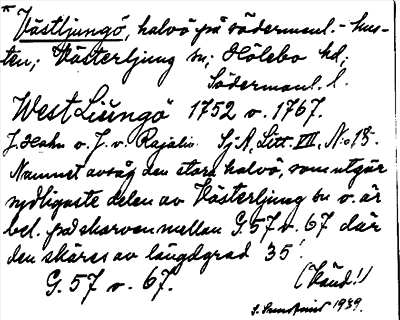 * Västljungö, halvö på södermanl.-kus-
ten; Västerljung sn; Hölebo hd;
Södermanl. l.
West Liüngö 1752 o. 1767.
J. Hahn o. J. v. Rajalin. Sj. A, Litt. VIII, No 18.
Namnet avsåg den stora halvö, som utgör
sydligaste delen av Västerljung sn o. är
bel. på skarven mellan G. 57 o. 67 där
den skäres av längdgrad 35'.
G. 57 o. 67.
(känd!)
1939.